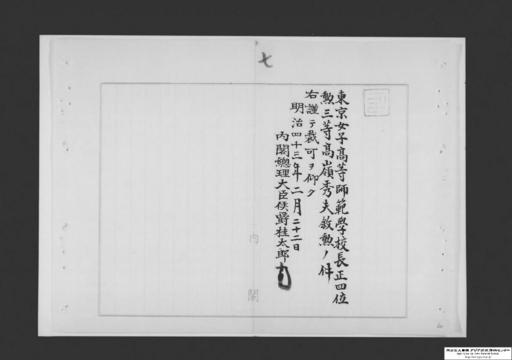 七
東京女子高等師範學校長正四位
勲三等高嶺秀夫敘勲ノ件
右謹テ裁可ヲ仰ク
明治四十三年二月二十二日
内閣總理大臣侯爵桂太郎
内閣